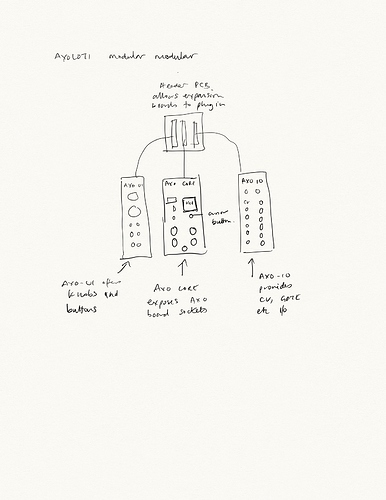 AXOLOTI modular modular
Header PCB
allows expansion
boards to plug in
AXO UI
AXO CORE
AXO IO
button.
AXO-UI of
knobs and
buttons
AXO CORE
exposes AXO
board sockets
AXO-IO
provides
CV, GATE
etc i/o